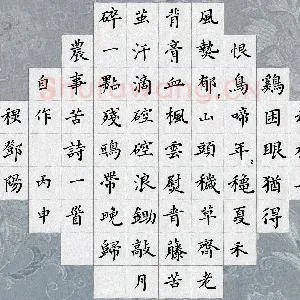 鷄困眼猶得
恨鳥啼年穐夏禾
風郁山頭穢草齊老
背膏血楓雲慰青藤苦
茁汗滴硿硿浪鋤敲月
碎一點殘鴟帶晚歸
農事苦詩一首
自作丙申
稷鄧陽